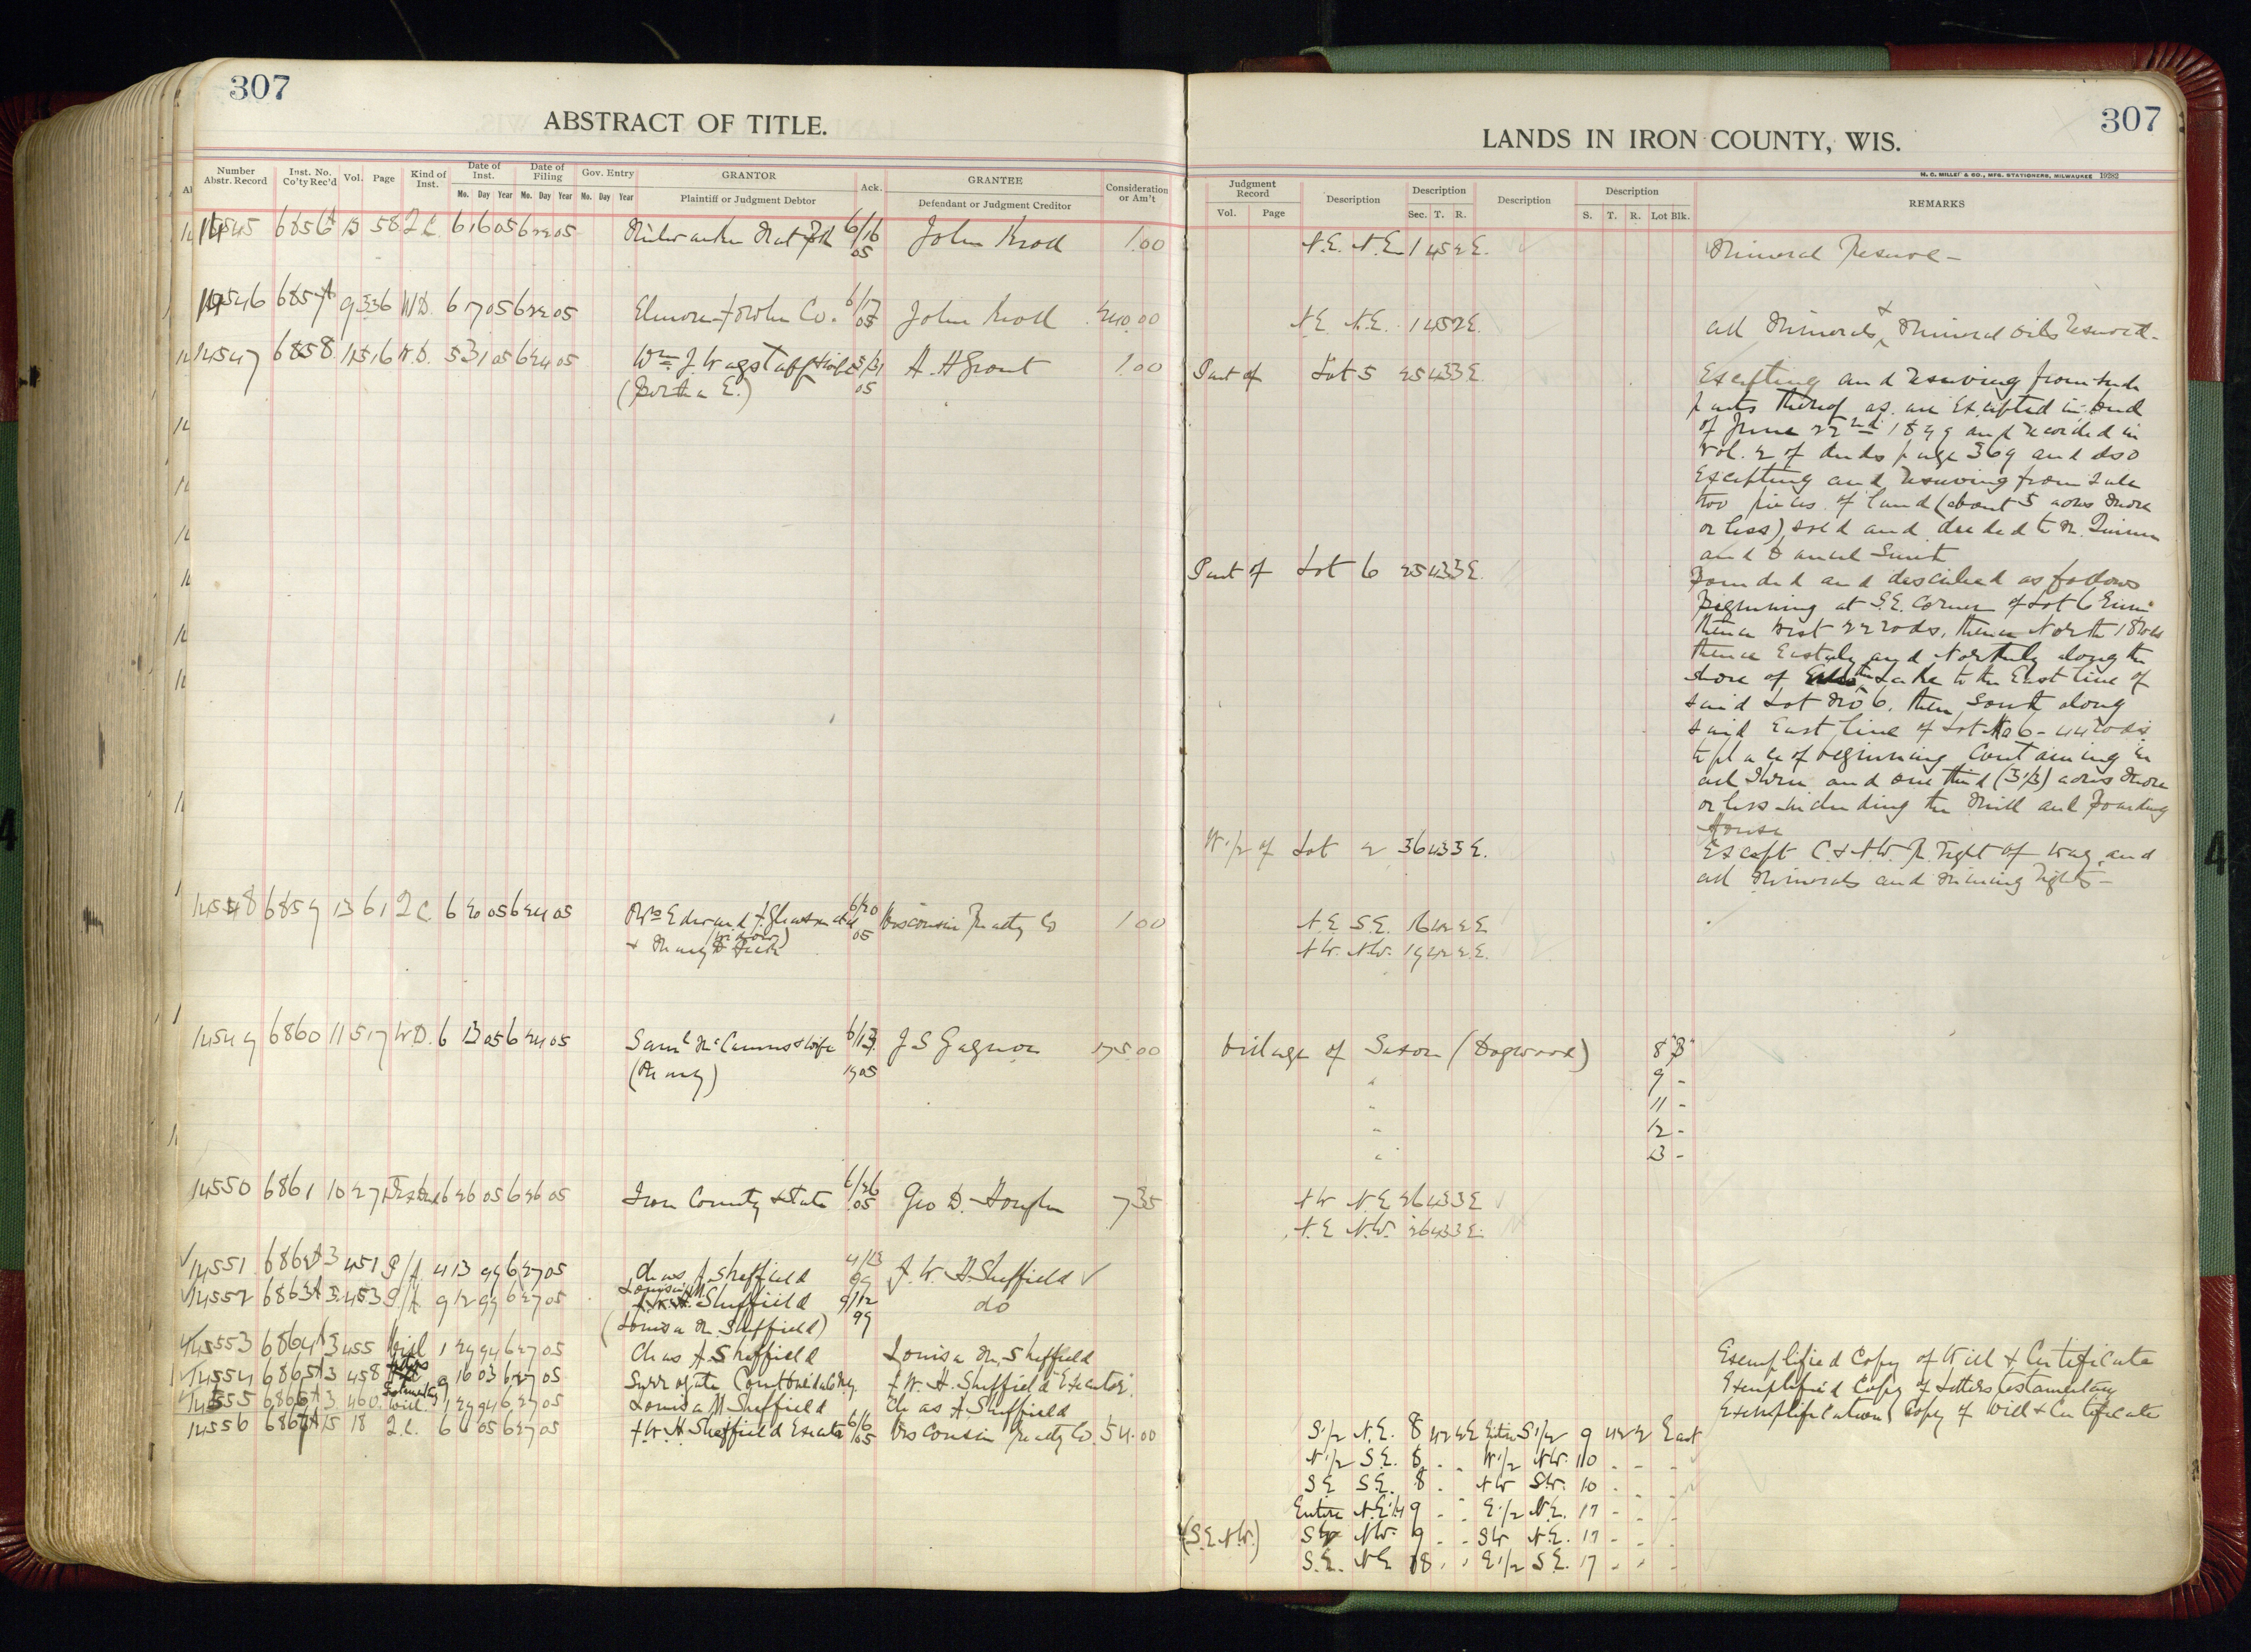 307
ABSTRACT OF TITLE.
Number Abstr. Record | Inst. No. Co'ty Rec'd | Vol. | Page | Kind of Inst. | Date of Inst. Mo. Day Year | Date of Filing Mo. Day Year | Gov. Entry Mo. Day Year | GRANTOR Plaintiff or Judgment Debtor | Ack. | GRANTEE Defendant or Judgment Creditor | Consideration or Am't
14545 6856 13 58 Q.C. 6 16 05 6 22 05 6/16 05 John 1.00
14546 6857 9 336 W.D. 6 17 05 6 22 05 Co. 6/17 05 John 240.00
14547 6858 11 516 W.D. 5 31 05 6 24 05 Wm. J. Wagstaff & wife 5/31 05 A. A Grant 1.00
(Bertha E.)
14548 6859 13 61 Q.C. 6 20 05 6 24 05 Edward 6/20 05 Wisconsin Realty Co 1.00
(widow)
+ Mary
14549 6860 11 517 W.D. 6 13 05 6 24 05 Saml Mc & wife 6/13 1905 J S Gagnon 175.00
(Mary)
14550 6861 10 27 6 26 05 6 26 05 Iron County & State 6/26 05 Geo D. 7 35
14551 6862 A3 451 P/A. 4 13 99 6 27 05 Chas A. Sheffield 4/13 99 F. W. H Sheffield
14552 6863 A3 453 P/A. 9 12 99 6 27 05 Louisa M Sheffield 9/12 99 do
(Louisa M. Sheffield)
14553 6864 A3 455 Will 1 29 94 6 27 05 Chas A. Sheffield Louisa M. Sheffield
14554 6865 A3 458 Letters Testamentary 9 16 03 6 27 05 Surrogate Court F. W. H. Sheffield Executor
14555 6866 A3 460 Will. 1 29 94 6 27 05 Louisa M Sheffield Chas A Sheffield
14556 6867 A15 18 Q.C. 6 6 05 6 27 05 F. W. H Sheffield Executor 6/6 05 Wisconsin Realty Co. 54.00
307
LANDS IN IRON COUNTY, WIS.
H. C. MILLER & CO., MFG. STATIONERS, MILWAUKEE 19282
Judgment Record Vol. Page | Description | Description Sec. T. R. | Description | Description S. T. R. Lot Blk. | REMARKS
N.E. N.E. 1 45 2 E. Mineral Reserve -
N.E. N.E. 1 45 2 E. All Minerals + Mineral Oils Reserved -
Part of Lot 5 25 43 3 E. Excepting and reserving from such
parts thereof as are excepted in deed
of June 22nd and recorded in
Vol. 2 of deeds page 369 and also
Excepting and reserving from sale
two pieces of land (about 5 acres more
or less), sold and deeded to
and Daniel Smith
Part of Lot 6 25 43 3 E. Bounded and described as follows
Beginning at S.E. corner of Lot 6
thence West 22 rods, thence North 18 rods
thence Easterly and Northerly along the
shore of the Lake to the East line of
said Lot No 6. then South along
said East line of Lot No 6 - 44 rods
to place of beginning Containing in
all three and one third (3 1/3) acres more
or less including the Mill and Boarding
House
W. 1/2 of Lot 2 36 43 3 E. Except C. & N.W. R. right of way, and
all Minerals and mining rights -
N.E S.E. 16 42 2 E
N.W. N.W. 19 42 2 E.
Village of Saxon (Dogwood) 8 "B"
" 9 -
" 11 -
" 12 -
" 13 -
N W N.E 26 43 3 E
N. E N.W. 26 43 3 E.
Exemplified Copy of Will & Certificate
Exemplified Copy of Letters testamentary
Exemplification Copy of Will & Certificate
S. 1/2 N.E. 8 42 2 E Entire S 1/2 9 42 2 East
N. 1/2 S.E. 8 . . W. 1/2 N.W. 10 - - -
S E S.E. 8 . N W S.W. 10 - - -
Entire N.E 1/4 9 - - E. 1/2 N.E. 17 - - -
(S.E N.W.) S W N.W. 9 - - S W N.E. 17 - - -
S. E. N E 18 . . E. 1/2 S E. 17 - - -